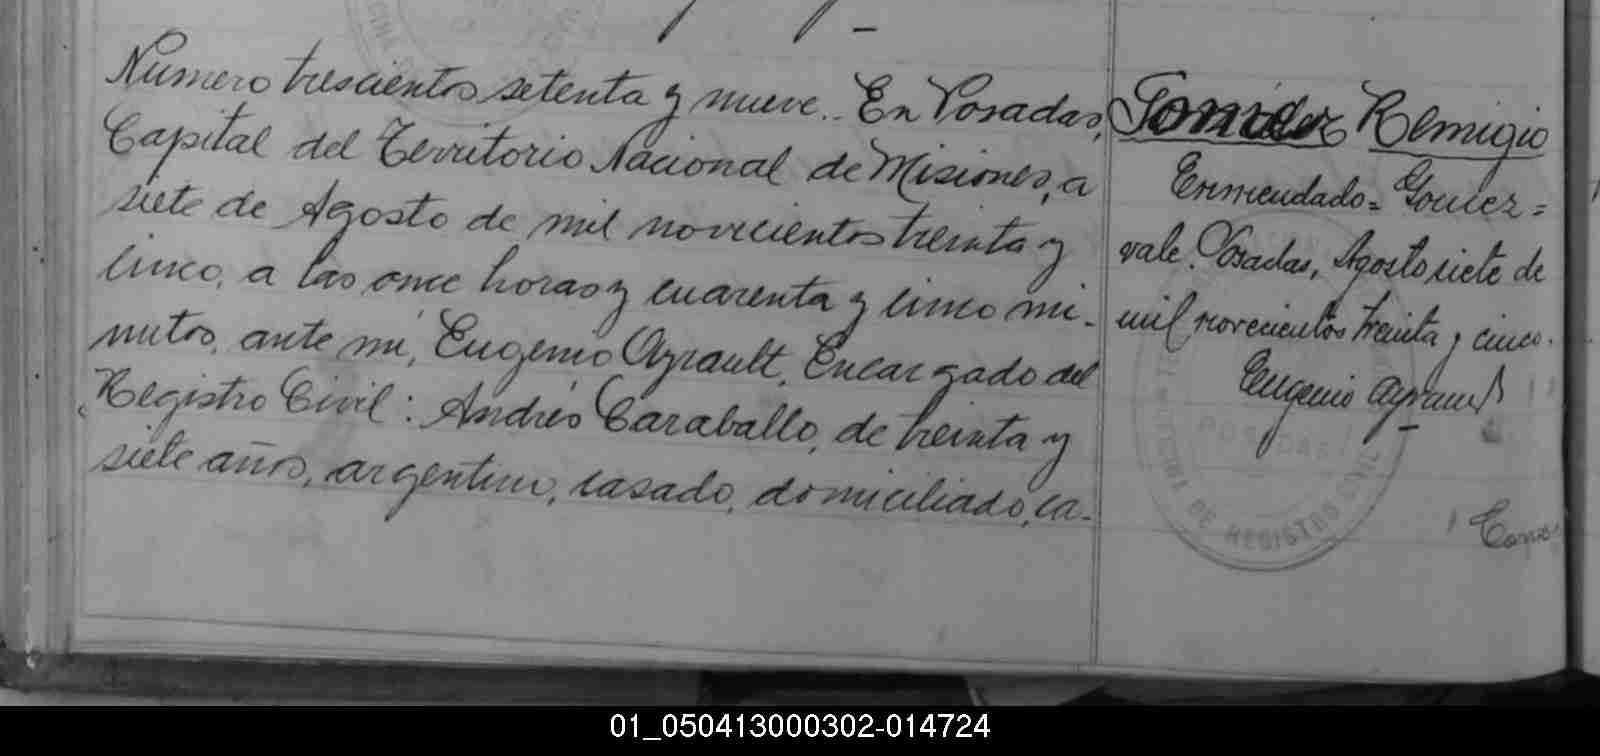 Número trescientos setenta y nueve.. En Posadas,
Capital del Territorio Nacional de Misiones, a
siete de Agosto de mil novecientos treinta y
cinco, a las once horas y cuarenta y cinco mi-
nutos, ante mi, Eugenio Ayrault, Encargado del
Registro Civil: Andrés Caraballo, de treinta y
siete años, argentino, casado, domiciliado, ca-
Gomez Remigio
Enmendado= Gomez=
vale. Posadas, Agosto siete de
mil novecientos treinta y cinco.
Eugenio Ayrault
POSADAS
OFICINA DE REGISTRO CIVIL
01_050413000302-014724